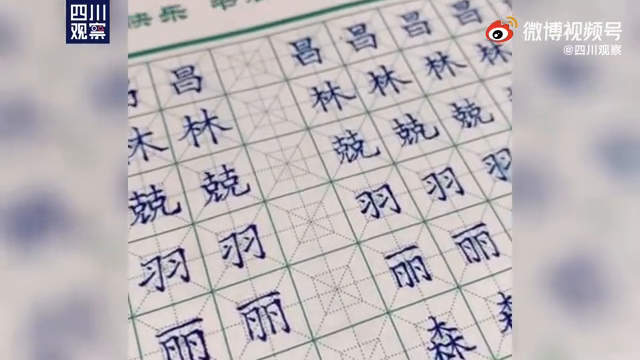 四川
观察
微博视频号
@四川观察
快乐 书
昌 昌 昌 昌 昌 昌
林 林 林 林 林 林
兢 兢 兢 兢 兢 兢
羽 羽 羽 羽 羽
丽 丽 丽 丽
森 森